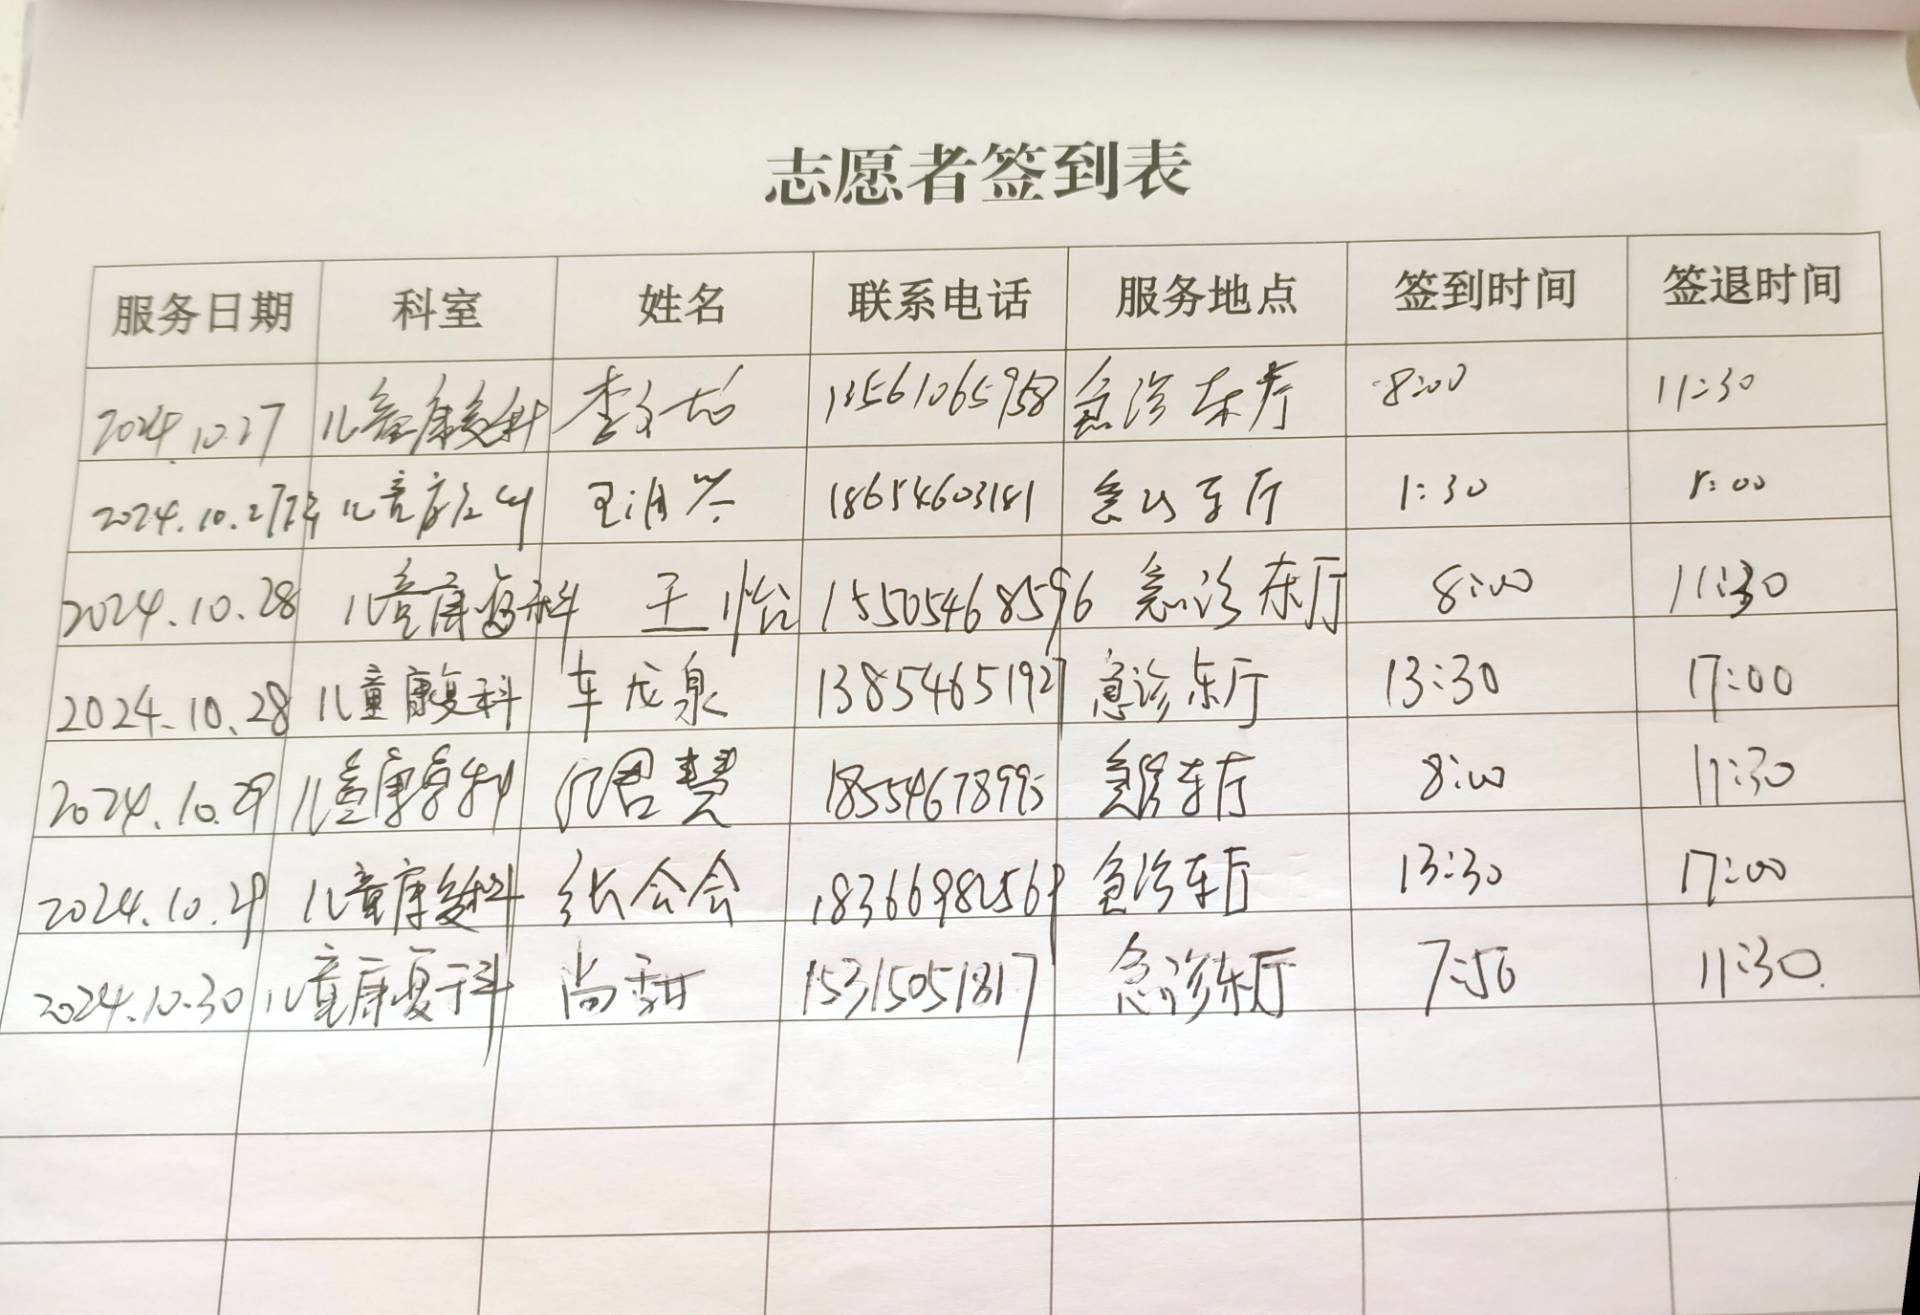 志愿者签到表
服务日期 科室 姓名 联系电话 服务地点 签到时间 签退时间
2024.10.27 儿童康复科 李 13561065958 急诊东厅 8:00 11:30
2024.10.27 儿童康复科 王 18654603181 急诊东厅 1:30 5:00
2024.10.28 儿童康复科 王怡 15505468596 急诊东厅 8:00 11:30
2024.10.28 儿童康复科 车龙泉 13854651927 急诊东厅 13:30 17:00
2024.10.29 儿童康复科 君慧 18554678995 急诊东厅 8:00 11:30
2024.10.29 儿童康复科 张会会 18366982569 急诊东厅 13:30 17:00
2024.10.30 儿童康复科 尚甜 15315051817 急诊东厅 7:50 11:30